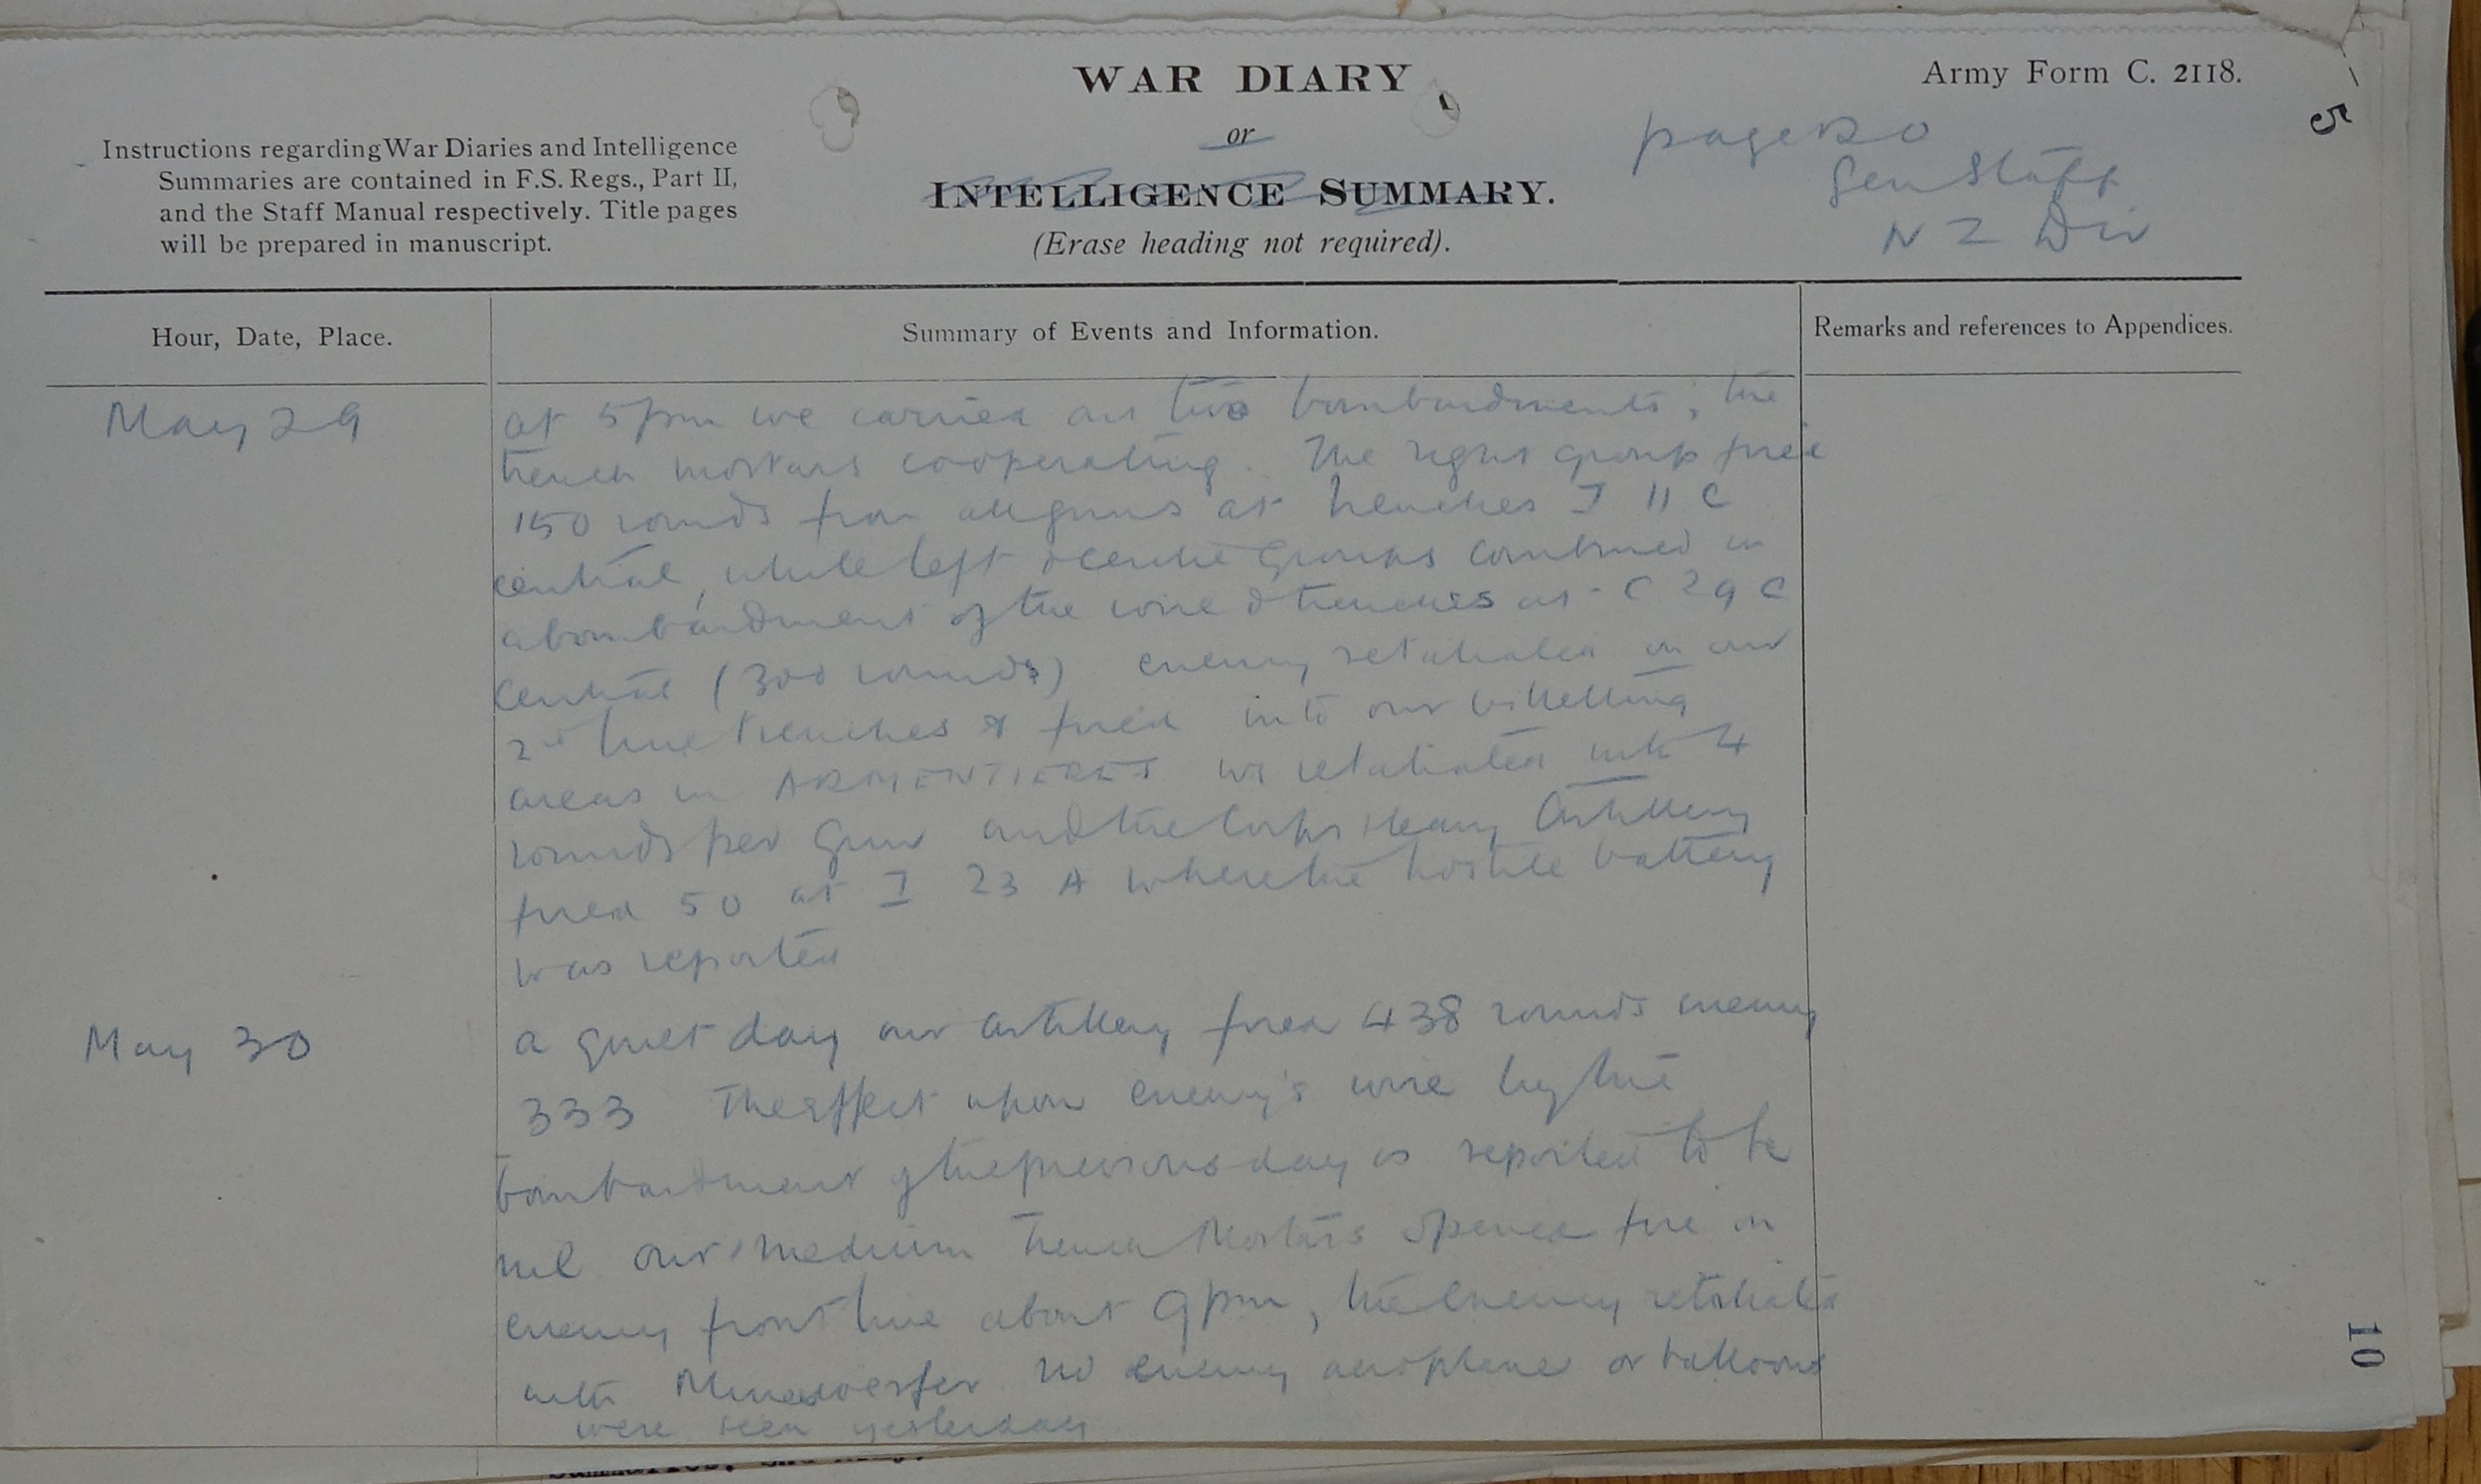 WAR DIARY
or
INTELLIGENCE SUMMARY.
(Erase heading not required).
Army Form C. 2118.
Instructions regarding War Diaries and Intelligence
Summaries are contained in F.S. Regs., Part II,
and the Staff Manual respectively. Title pages
will be prepared in manuscript.
page
Gen Staff
N Z Div
5
Hour, Date, Place.
Summary of Events and Information.
Remarks and references to Appendices.
May 29
at 5pm we carried out two bombardments; the
trench mortars cooperating. The right group fired
150 rounds from all guns at trenches I 11 C
central, while left & centre groups combined in
a bombardment of the wire & trenches at C 29 C
central (300 rounds) enemy retaliated on our
2nd line trenches & fired into our billeting
areas in ARMENTIERES we retaliated with 4
rounds per gun and the Corps Heavy Artillery
fired 50 at I 23 A where the hostile battery
was reported
May 30
a quiet day our artillery fired 438 rounds enemy
333 The effect upon enemy's wire by the
bombardment of the previous day is reported to be
nil our medium trench Mortars opened fire on
enemy front line about 9pm, the enemy retaliated
with Minenwerfer no enemy aeroplanes or balloons
were seen yesterday
10